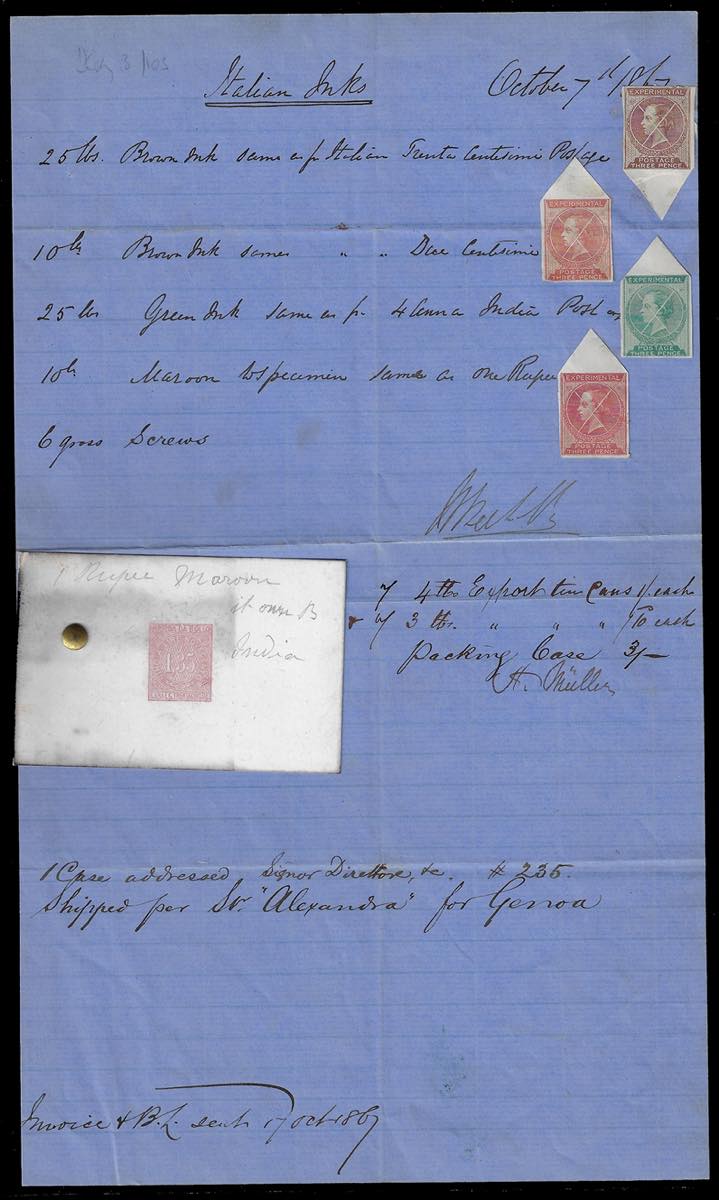 Italian Inks October 7th 1867
EXPERIMENTAL
POSTAGE
THREE PENCE
25 lbs. Brown Ink same as pr Italian Trenta Centesimi Postage
EXPERIMENTAL
POSTAGE
THREE PENCE
10 lbs Brown Ink same " " Centesimi
EXPERIMENTAL
POSTAGE
THREE PENCE
25 lbs Green Ink same as pr 4 Anna India Postage
EXPERIMENTAL
POSTAGE
THREE PENCE
10 lbs Maroon to specimen same as one Rupee
6 gross Screws
1 Rupee Maroon
B
India
135
7 4 lbs Export tin Cans 1/ each
& 7 3 lbs. " " " /10 each
Packing Case 3/-
H. Müller
1 Case addressed, Signor Direttore, &c. # 235.
Shipped per Str. "Alexandra" for Genoa
Invoice & B.L. sent 17 Oct 1867